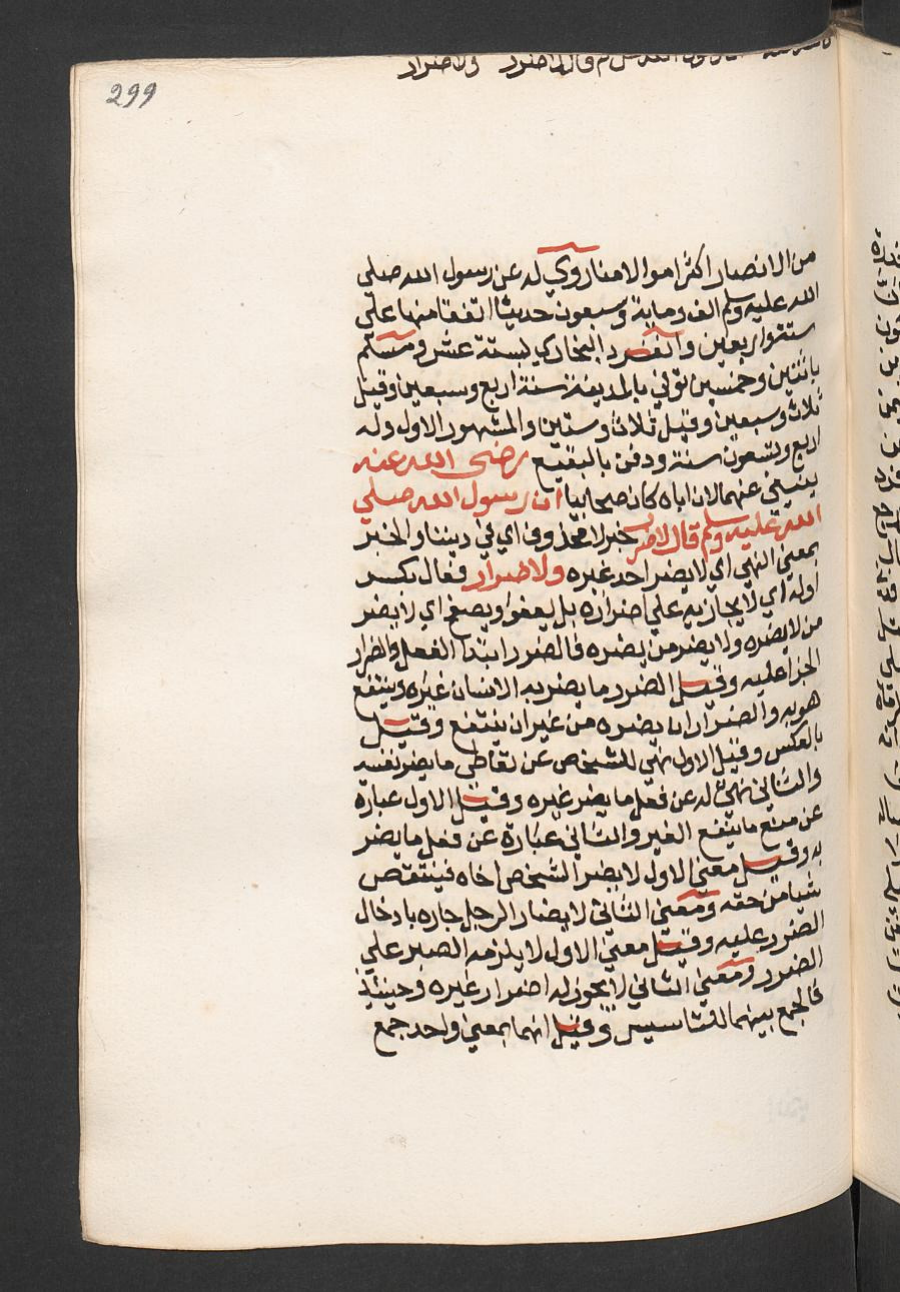 قال لا ضرر ولا ضرار
299
من الانصار اكثر اموالا منا روي له عن رسول الله صلي
الله عليه وسلم الف وماية وسبعون حديثا اتفقا منها علي
ستة واربعين وانفرد البخاري بستة عشر ومسلم
باثنين وخمسين توفي بالمدينة سنة اربع وسبعين وقيل
ثلاث وسبعين وقيل ثلاث وستين والمشهور الاول وله
اربع وتسعون سنة ودفن بالبقيع رضي الله عنه
ينبغي عنهما لان اباه كان صحابيا ان رسول الله صلي
الله عليه وسلم قال لا ضرر خبر لا محذوف اي في ديننا والخبر
بمعني النهي اي لا يضر احد غيره ولا ضرار فعال بكسر
اوله اي لا يجازيه علي اضراره بل يعفو ويصفح اي لا يضر
من لا يضره ولا يضر من يضره فالضرر ابتدا الفعل والضرار
الجزا عليه وقيل الضرر ما يضر به الانسان غيره وينتفع
هو به والضرار ان يضره من غير ان ينتفع وقيل
بالعكس وقيل الاول نهي للشخص عن تعاطي ما يضر نفسه
والثاني نهي له عن فعل ما يضر غيره وقيل الاول عبارة
عن منع ما ينفع الغير والثاني عبارة عن فعل ما يضر
به وقيل معني الاول لا يضر الشخص اخاه فينتقص
شيا من حقه ومعني الثاني لا يضار الرجل جاره بادخال
الضرر عليه وقيل معني الاول لا يلزمه الصبر علي
الضرر ومعني الثاني لا يجوز له اضرار غيره وحينيذ
فالجمع بينهما للتاسيس وقيل انهما بمعني واحد جمع